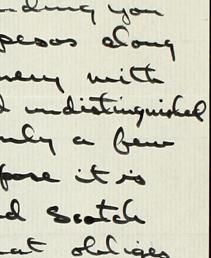 nding you
pesos along
ney with
d undistinguished
nly a few
fore it is
d Scotch
hat obliges